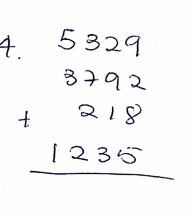 4. 5329
3792
+ 218
1235